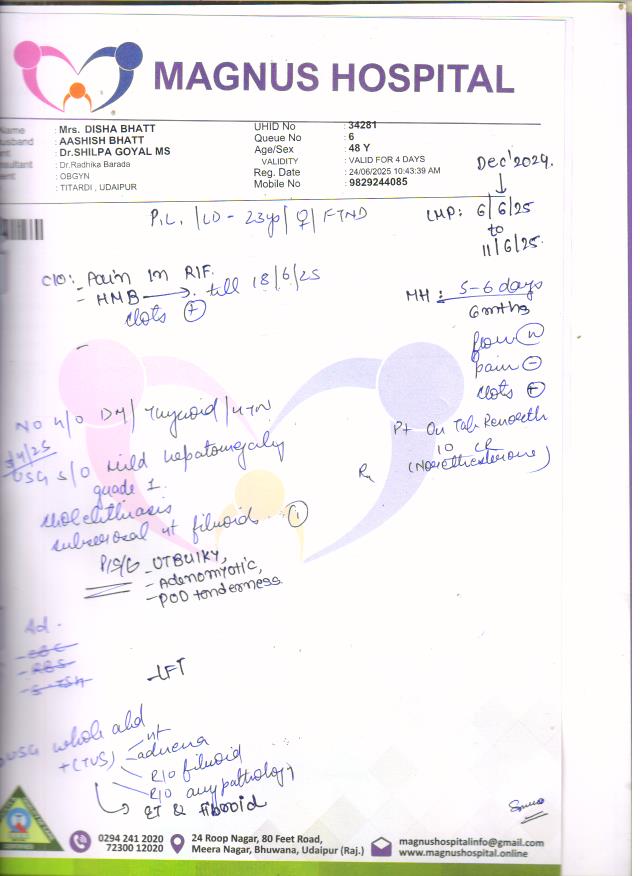 MAGNUS HOSPITAL
Name : Mrs. DISHA BHATT
usband : AASHISH BHATT
nt : Dr.SHILPA GOYAL MS
nsultant : Dr.Radhika Barada
ent : OBGYN
: TITARDI , UDAIPUR
UHID No : 34281
Queue No : 6
Age/Sex : 48 Y
VALIDITY : VALID FOR 4 DAYS
Reg. Date : 24/06/2025 10:43:39 AM
Mobile No : 9829244085
Dec' 2024.
P1L1 / LD - 23yr / ♀ / FTND
LMP: 6/6/25
to
11/6/25.
C/O:- Pain in RIF.
- HMB → till 18/6/25
clots +
MH : 5-6 days
6 mnths
flow n
pain -
clots +
Pt On Tab
10 CR
(Norethisterone)
Rx
NO H/O DM / Thyroid / HTN
/4/25
USG S/O Mild hepatomegaly
grade 1.
cholelithiasis
subserosal ut fibroid. 1
P/S/G - UT BULKY,
- Adenomyotic,
- POD tenderness
Ad -
- CBC
- RBS
- S. TSH
- LFT
USG whole abd
+ (TVS) - ut
- adnexa
R/O fibroid
R/O any pathology
ET & fibroid
0294 241 2020
72300 12020
24 Roop Nagar, 80 Feet Road,
Meera Nagar, Bhuwana, Udaipur (Raj.)
magnushospitalinfo@gmail.com
www.magnushospital.online